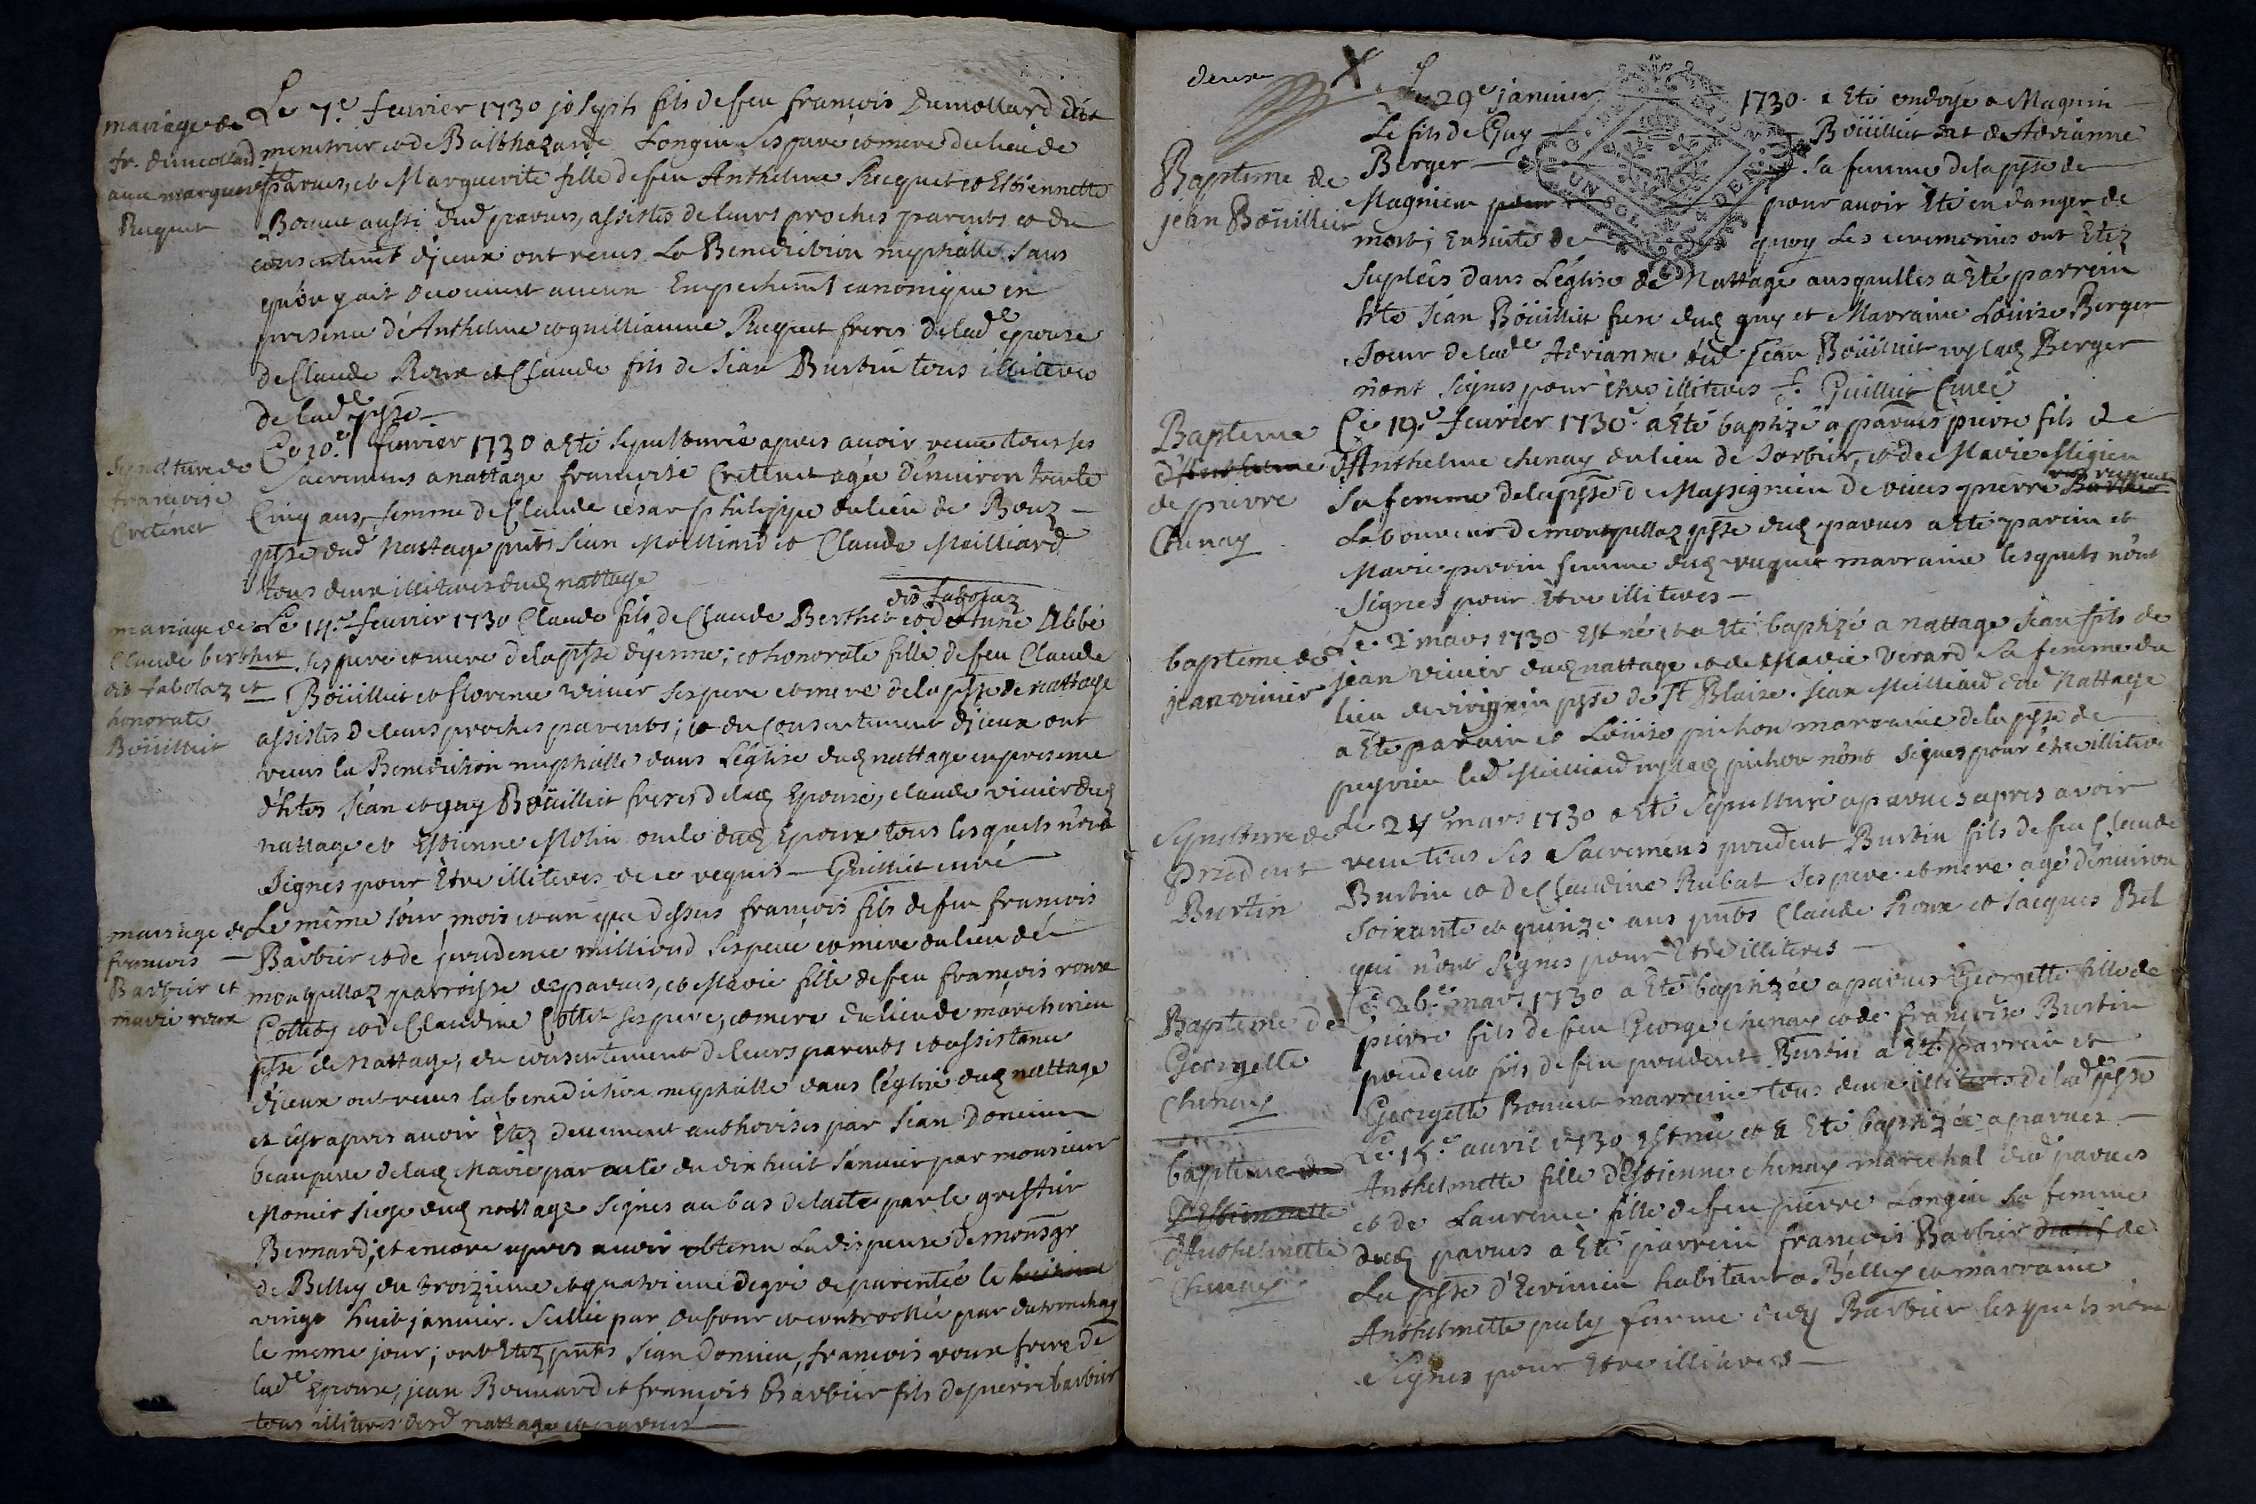 mariage de
fr. dumollard
avec marguerite
Ruquet
Le 7e fevrier 1730 joseph fils de feu francois Dumollard dit
menetrier et de Balthazarde Longin ses pere et mere du lieu de
parves, et Marguerite fille de feu Anthelme Ruquet et Estiennette
Bonnet aussi dud parves, assistés de leurs proches parents et du
consentemt d'jceux ont receus La Benediction nuptialle sans
qu'on y ait decouvert aucun Empechemt canonique en
presence d'Anthelme et guilliaume Ruquet freres de lade epouse
de Claude Roux et Claude fils de Jean Burtin tous illiteres
de lade psse
sepulture de
francoise
Cretenet
Le 10e fevrier 1730 a été sepulturée apres avoir receue tous ses
Sacremens a nattage francoise Cretenet agée d'environ trente
Cinq ans, femme de Claude césar philippe du lieu de Bouz
psse dud Nattage pnts Jean Meilliard et Claude Meilliard
tous deux illiteres dud nattage
mariage de
Claude berthet
dit tabolaz et
honorate
Boüilliet
dit tabolaz
Le 14e fevrier 1730 Claude fils de Claude Berthet et de Abbé
ses pere et mere de la psse d'jenne; et honorate fille de feu Claude
Boüilliet et florence vivier ses pere et mere de la psse de nattage
assistés de leurs proches parents; et du Consentement d'jceux ont
receus la Benediction nuptialle dans L'église dud nattage en presence
d'htes Jean et guy Boüilliet freres de lad Epouse, claude vivier dud
nattage et Estienne Molin oncle dud Epoux tous lesquels n'ont
Signes pour Etre illiteres de ce requis — Guilliet curé
mariage de
francois
Barbier et
marie roux
Le même Jour mois et an que dessus francois fils de feu francois
Barbier et de prudence milliard ses pere et mere du lieu de
montpellaz parroisse de parves, et Marie fille de feu francois roux
Collet et de Claudine Collet ses pere, et mere du lieu de marcherieu
psse de Nattage, du consentement de leurs parents et assistance
d'jceux ont receus la benediction nuptialle dans l'églie dud nattage
et ce apres avoir Etez deuement authorisés par Jean Domieu
beaupere de lad Marie par acte du dix huit Janvier par monsieur
Monier Juge dud nattage signés au bas de lacte par le greffier
Bernard; et encore apres avoir obtenu La dispense de monsgr
de Belley du troizieme et quatrieme degré de parentée le
vingt huit janvier. Scellée par dufour et controollée par
le meme jour; ont Etez pnts Jean Domieu, francois roux frere de
lade Epouse, jean Bonnard et francois Barbier fils de pierre barbier
tous illiteres desd nattage et parves
deux
Bapteme de
jean Boüilliet
Le 29e janvier 1730 a Eté ondoyé a Magnin
Le fils de Guy Boüilliet et d'Adrianne
Berger sa femme de la psse de
Magnieu pour avoir Eté en danger de
mort; Ensuite de quoy Les ceremonies ont Etez
supleés dans L'église de Nattage ausquelles a Eté parrein
hte Jean Boüilliet frere dud guy et Marraine Louise Berger
Soeur de lade Adrianne led Jean Boüilliet ny lad Berger
n'ont signes pour être illiteres f. Guilliet Curé
Bapteme
d'Anthelme
de pierre
Chenay
Le 19e fevrier 1730 a été baptizé a parves pierre fils de
d'Anthelme chenay du lieu de Sorbier, et de Marie Migieu
sa femme de la psse de Massignieu de rives pierre Barbier ruquet
Laboureur de montpellaz psse dud parves a été parein et
Marie perrin femme dud ruquet marraine lesquels n'ont
Signes pour Etre illiteres —
bapteme de
jean vivier
Le 2e mars 1730 Est né et a Eté baptizé a nattage Jean fils de
jean vivier dud nattage et de Marie Verard sa femme du
lieu de virignin psse de St Blaize. Jean Meilliard dud Nattage
a Eté parain et Louise pichon marraine de la psse de
peyrieu led Meilliard ny lad pichon n'ont signes pour être illiteres
sepulture de
prudent
Burtin
Le 24e mars 1730 a Eté Sepulturé a parves apres avoir
receu tous ses Sacremens prudent Burtin fils de feu Claude
Burtin et de Claudine Rubat ses pere et mere agé d'environ
soixante et quinze ans pnts Claude Roux et Jacques Bel
qui n'ont signes pour Etre illiteres —
Bapteme de
Georgette
Chenay
Le 26e mars 1730 a Eté baptizée a parves Georgette fille de
pierre fils de feu George chenay et de francoise Burtin
prudent fils de feu prudent Burtin a Eté parrein et
Georgette Bonnet marreine tous deux illiteres de lade psse
bapteme de
D'Estiennette
d'Anthelmette
Chenay
Le 15e avril 1730 Est née et a Eté baptizée a parves
Anthelmette fille d'Estienne chenay marechal dud parves
et de Laurence fille de feu pierre Longin sa femme
dud parves a Eté parrein francois Barbier natif de
La psse d'Evrimieu habitant a Belley et marraine
Anthelmette puly femme dud Barbier lesquels n'ont
Signes pour Etre illiteres —